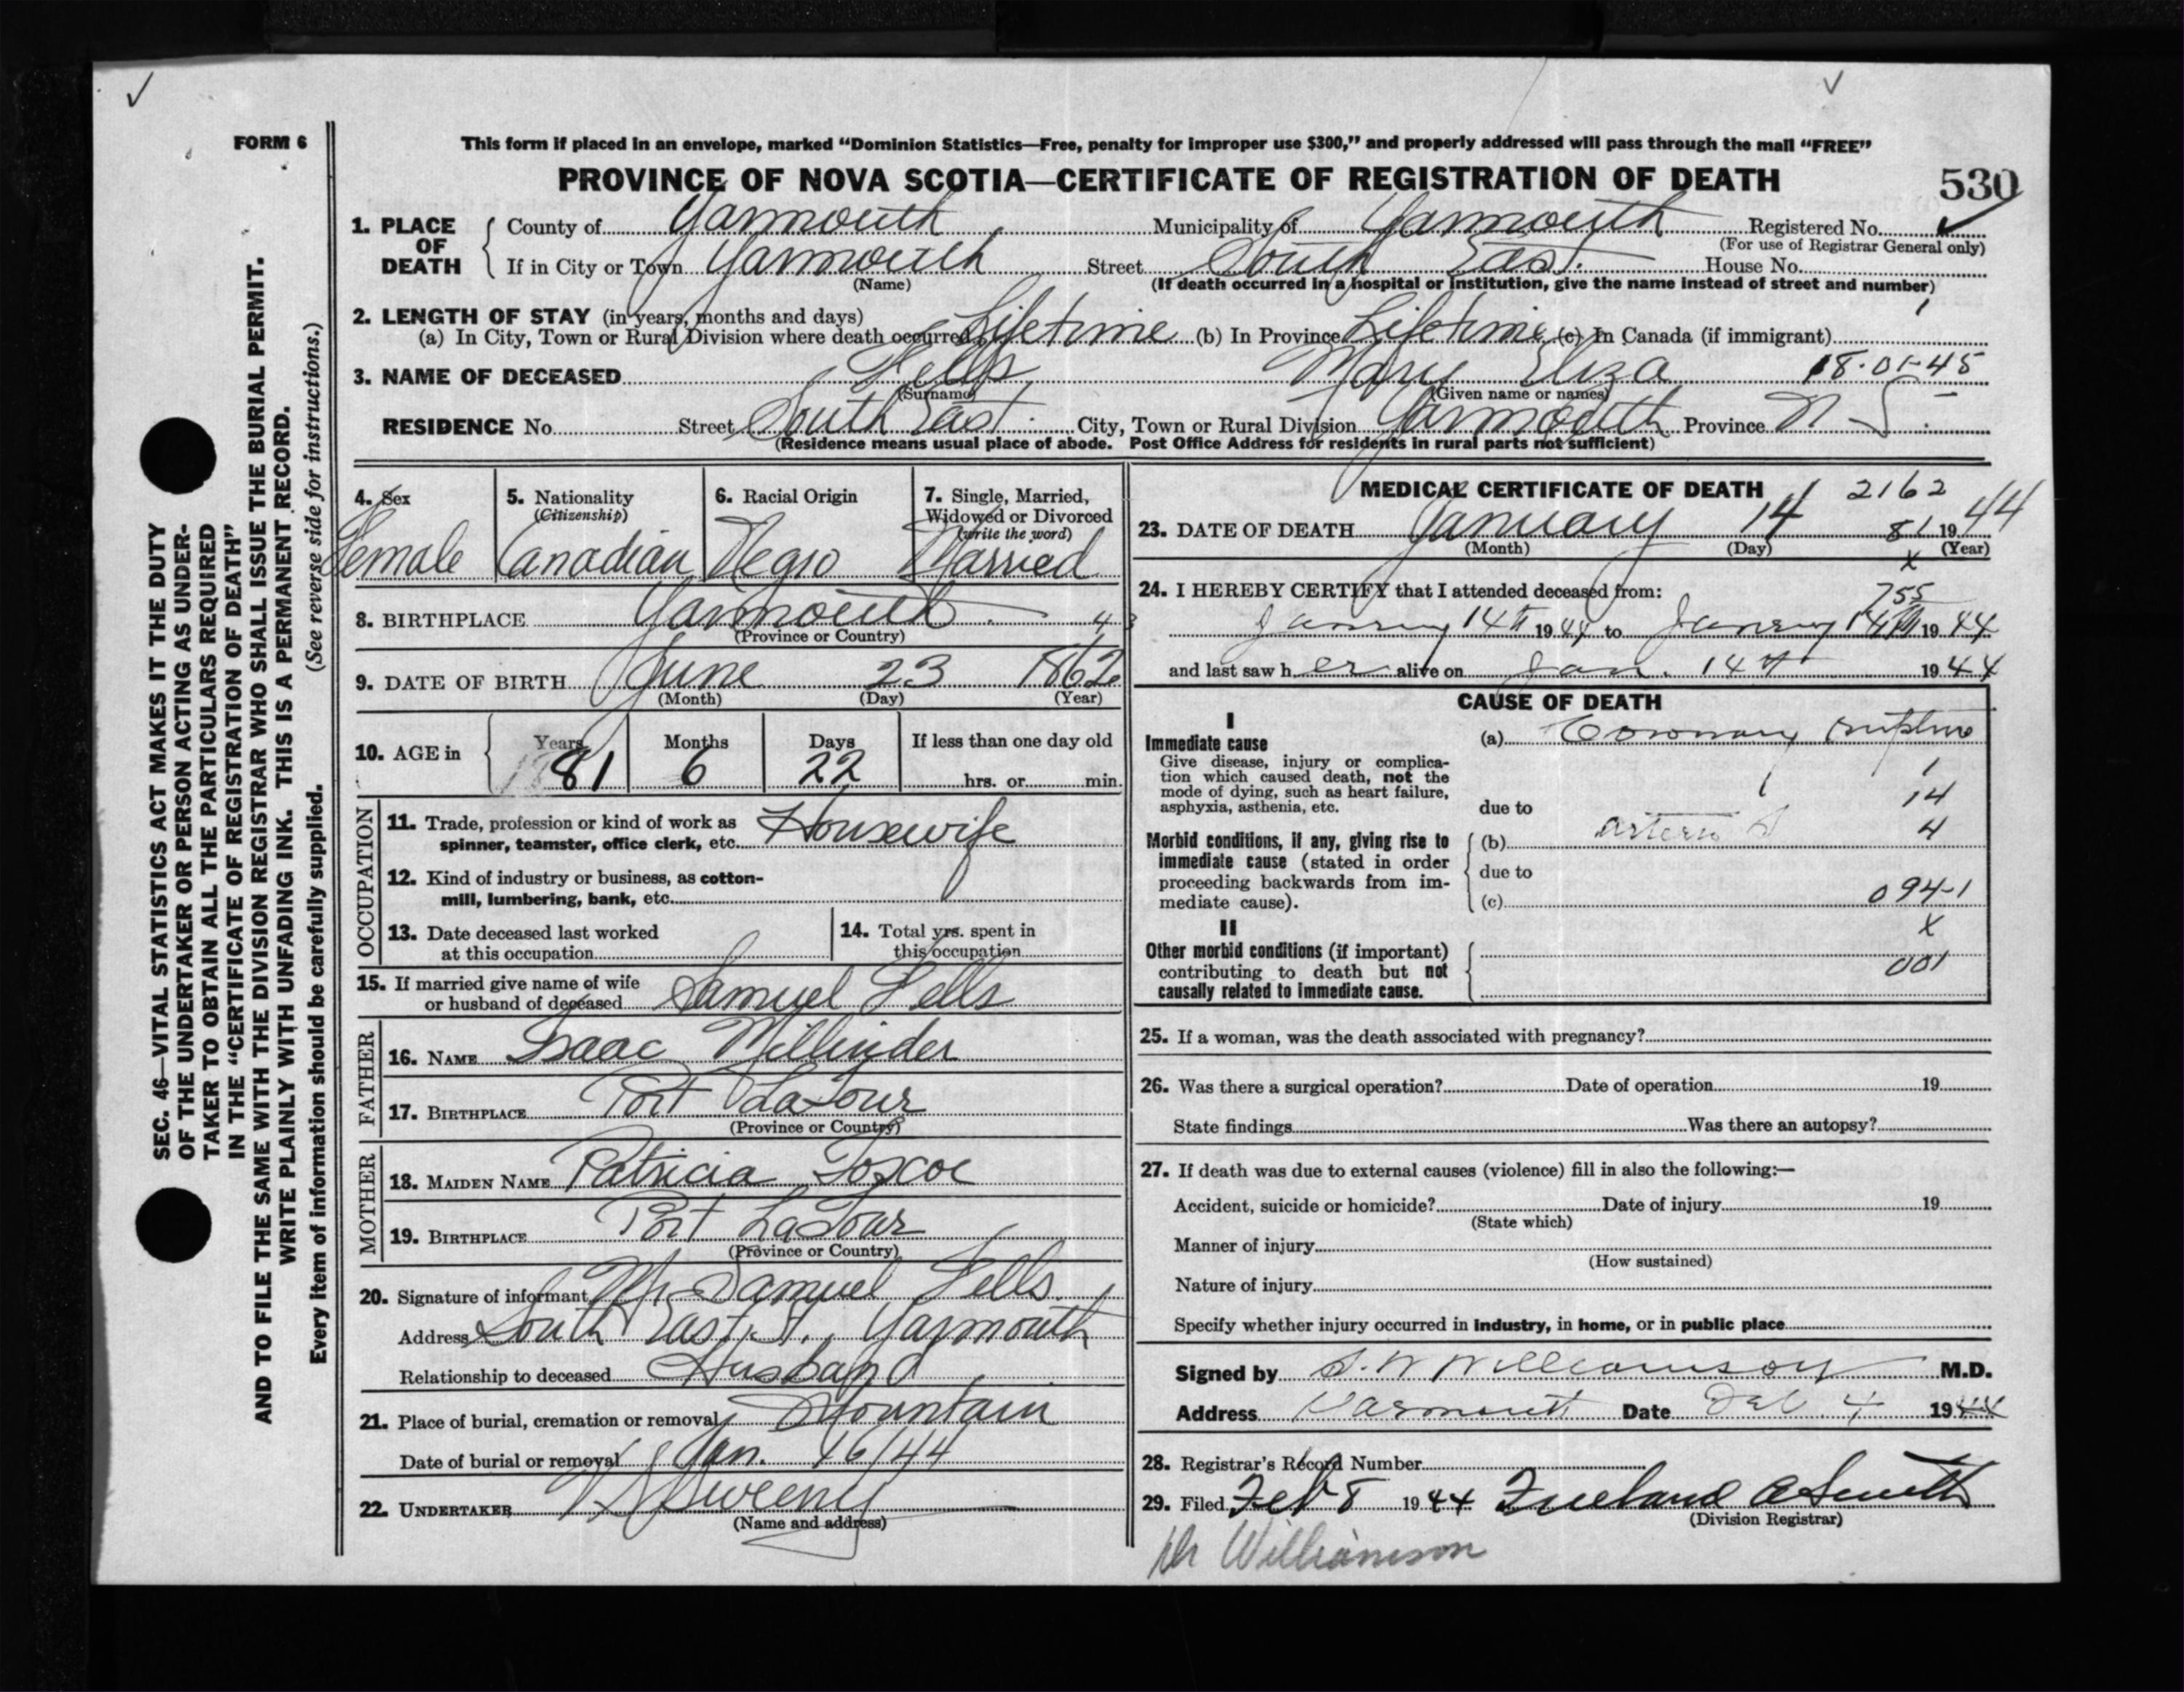 ✓ ✓
FORM 6
This form if placed in an envelope, marked “Dominion Statistics—Free, penalty for improper use $300,” and properly addressed will pass through the mail “FREE”
PROVINCE OF NOVA SCOTIA—CERTIFICATE OF REGISTRATION OF DEATH 530
1. PLACE OF DEATH { County of Yarmouth Municipality of Yarmouth Registered No. ✓
(For use of Registrar General only)
If in City or Town Yarmouth Street South East. House No.
(Name) (If death occurred in a hospital or institution, give the name instead of street and number)
2. LENGTH OF STAY (in years, months and days)
(a) In City, Town or Rural Division where death occurred Lifetime (b) In Province Lifetime (c) In Canada (if immigrant)
3. NAME OF DECEASED Fells Mary Eliza 18.01-45
(Surname) (Given name or names)
RESIDENCE No. Street South East. City, Town or Rural Division Yarmouth Province N S.
(Residence means usual place of abode. Post Office Address for residents in rural parts not sufficient)
4. Sex
Female
5. Nationality
(Citizenship)
Canadian
6. Racial Origin
Negro
7. Single, Married,
Widowed or Divorced
(write the word)
Married
8. BIRTHPLACE Yarmouth. 43
(Province or Country)
9. DATE OF BIRTH June 23 1862
(Month) (Day) (Year)
10. AGE in { Years Months Days If less than one day old
81 6 22 hrs. or min.
OCCUPATION
11. Trade, profession or kind of work as
spinner, teamster, office clerk, etc. Housewife
12. Kind of industry or business, as cotton-
mill, lumbering, bank, etc.
13. Date deceased last worked
at this occupation
14. Total yrs. spent in
this occupation
15. If married give name of wife
or husband of deceased Samuel Fells
FATHER
16. NAME Isaac Millinder
17. BIRTHPLACE Port LaTour
(Province or Country)
MOTHER
18. MAIDEN NAME Patricia Toscoe
19. BIRTHPLACE Port LaTour
(Province or Country)
20. Signature of informant Mr Samuel Fells.
Address South East St., Yarmouth
Relationship to deceased Husband
21. Place of burial, cremation or removal Mountain
Date of burial or removal Jan. 16/44
22. UNDERTAKER V S Sweeny
(Name and address)
MEDICAL CERTIFICATE OF DEATH 2162
23. DATE OF DEATH January 14 81 19 44
(Month) (Day) x (Year)
24. I HEREBY CERTIFY that I attended deceased from: 755
January 14th 19 44 to January 14th 19 44
and last saw h er alive on Jan. 14th 19 44
CAUSE OF DEATH
I
Immediate cause
Give disease, injury or complica-
tion which caused death, not the
mode of dying, such as heart failure,
asphyxia, asthenia, etc.
(a) Coronary
1
due to 14
Morbid conditions, if any, giving rise to
immediate cause (stated in order
proceeding backwards from im-
mediate cause).
(b) Arterio S 4
due to
(c) 094-1
II x
Other morbid conditions (if important)
contributing to death but not
causally related to immediate cause.
001
25. If a woman, was the death associated with pregnancy?
26. Was there a surgical operation? Date of operation 19
State findings Was there an autopsy?
27. If death was due to external causes (violence) fill in also the following:—
Accident, suicide or homicide? Date of injury 19
(State which)
Manner of injury
(How sustained)
Nature of injury
Specify whether injury occurred in industry, in home, or in public place
Signed by S. W Williamson M.D.
Address Yarmouth Date Feb. 4 1944
28. Registrar's Record Number
29. Filed Feb 8 19 44 Freeland A Smith
(Division Registrar)
Dr Williamson
SEC. 46—VITAL STATISTICS ACT MAKES IT THE DUTY
OF THE UNDERTAKER OR PERSON ACTING AS UNDER-
TAKER TO OBTAIN ALL THE PARTICULARS REQUIRED
IN THE “CERTIFICATE OF REGISTRATION OF DEATH”
AND TO FILE THE SAME WITH THE DIVISION REGISTRAR WHO SHALL ISSUE THE BURIAL PERMIT.
WRITE PLAINLY WITH UNFADING INK. THIS IS A PERMANENT RECORD.
Every item of information should be carefully supplied. (See reverse side for instructions.)